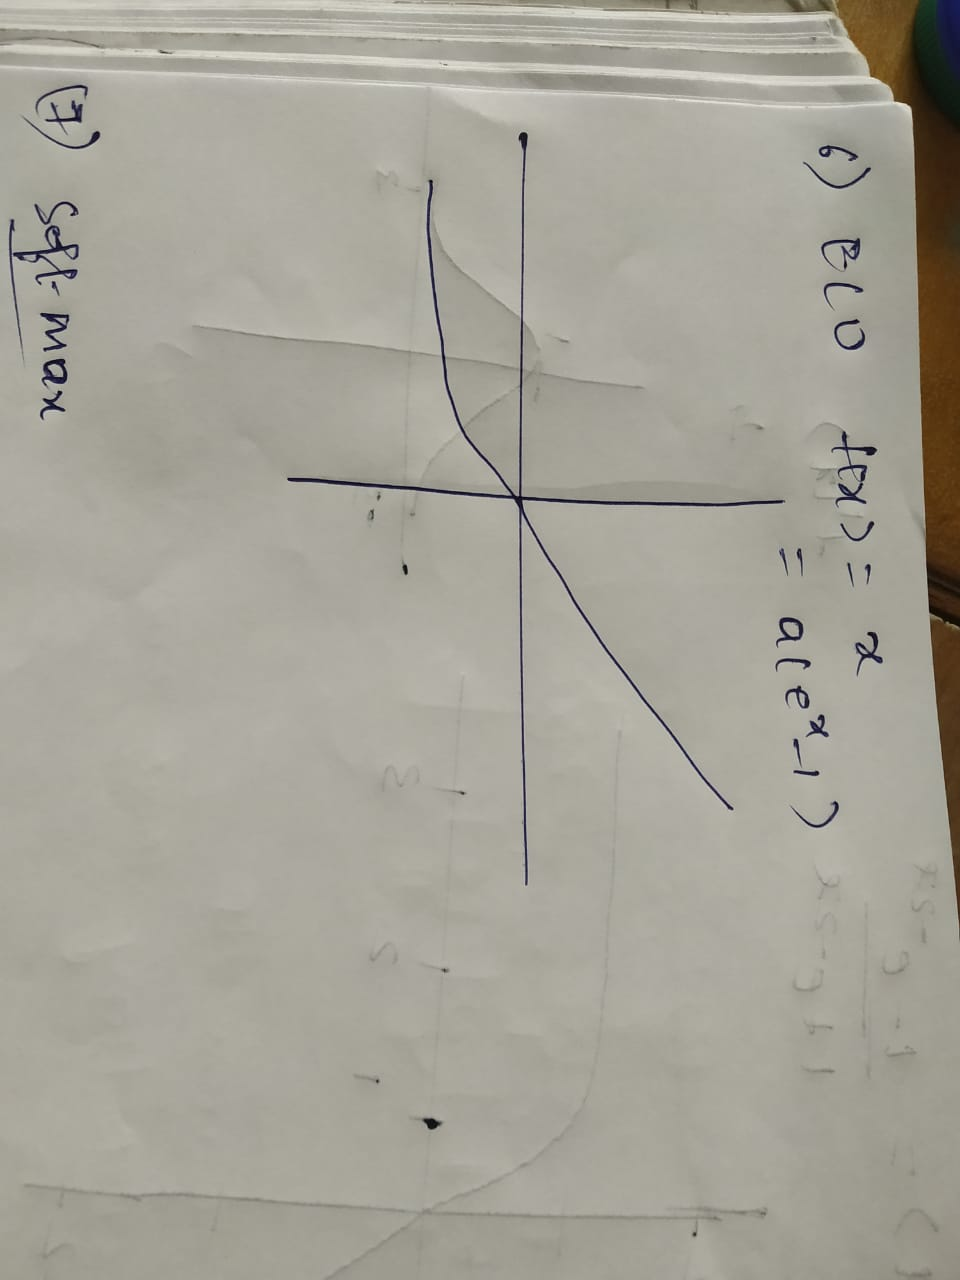 6) ELU f(x) = x
= a(e^x-1)
(7) Soft-max